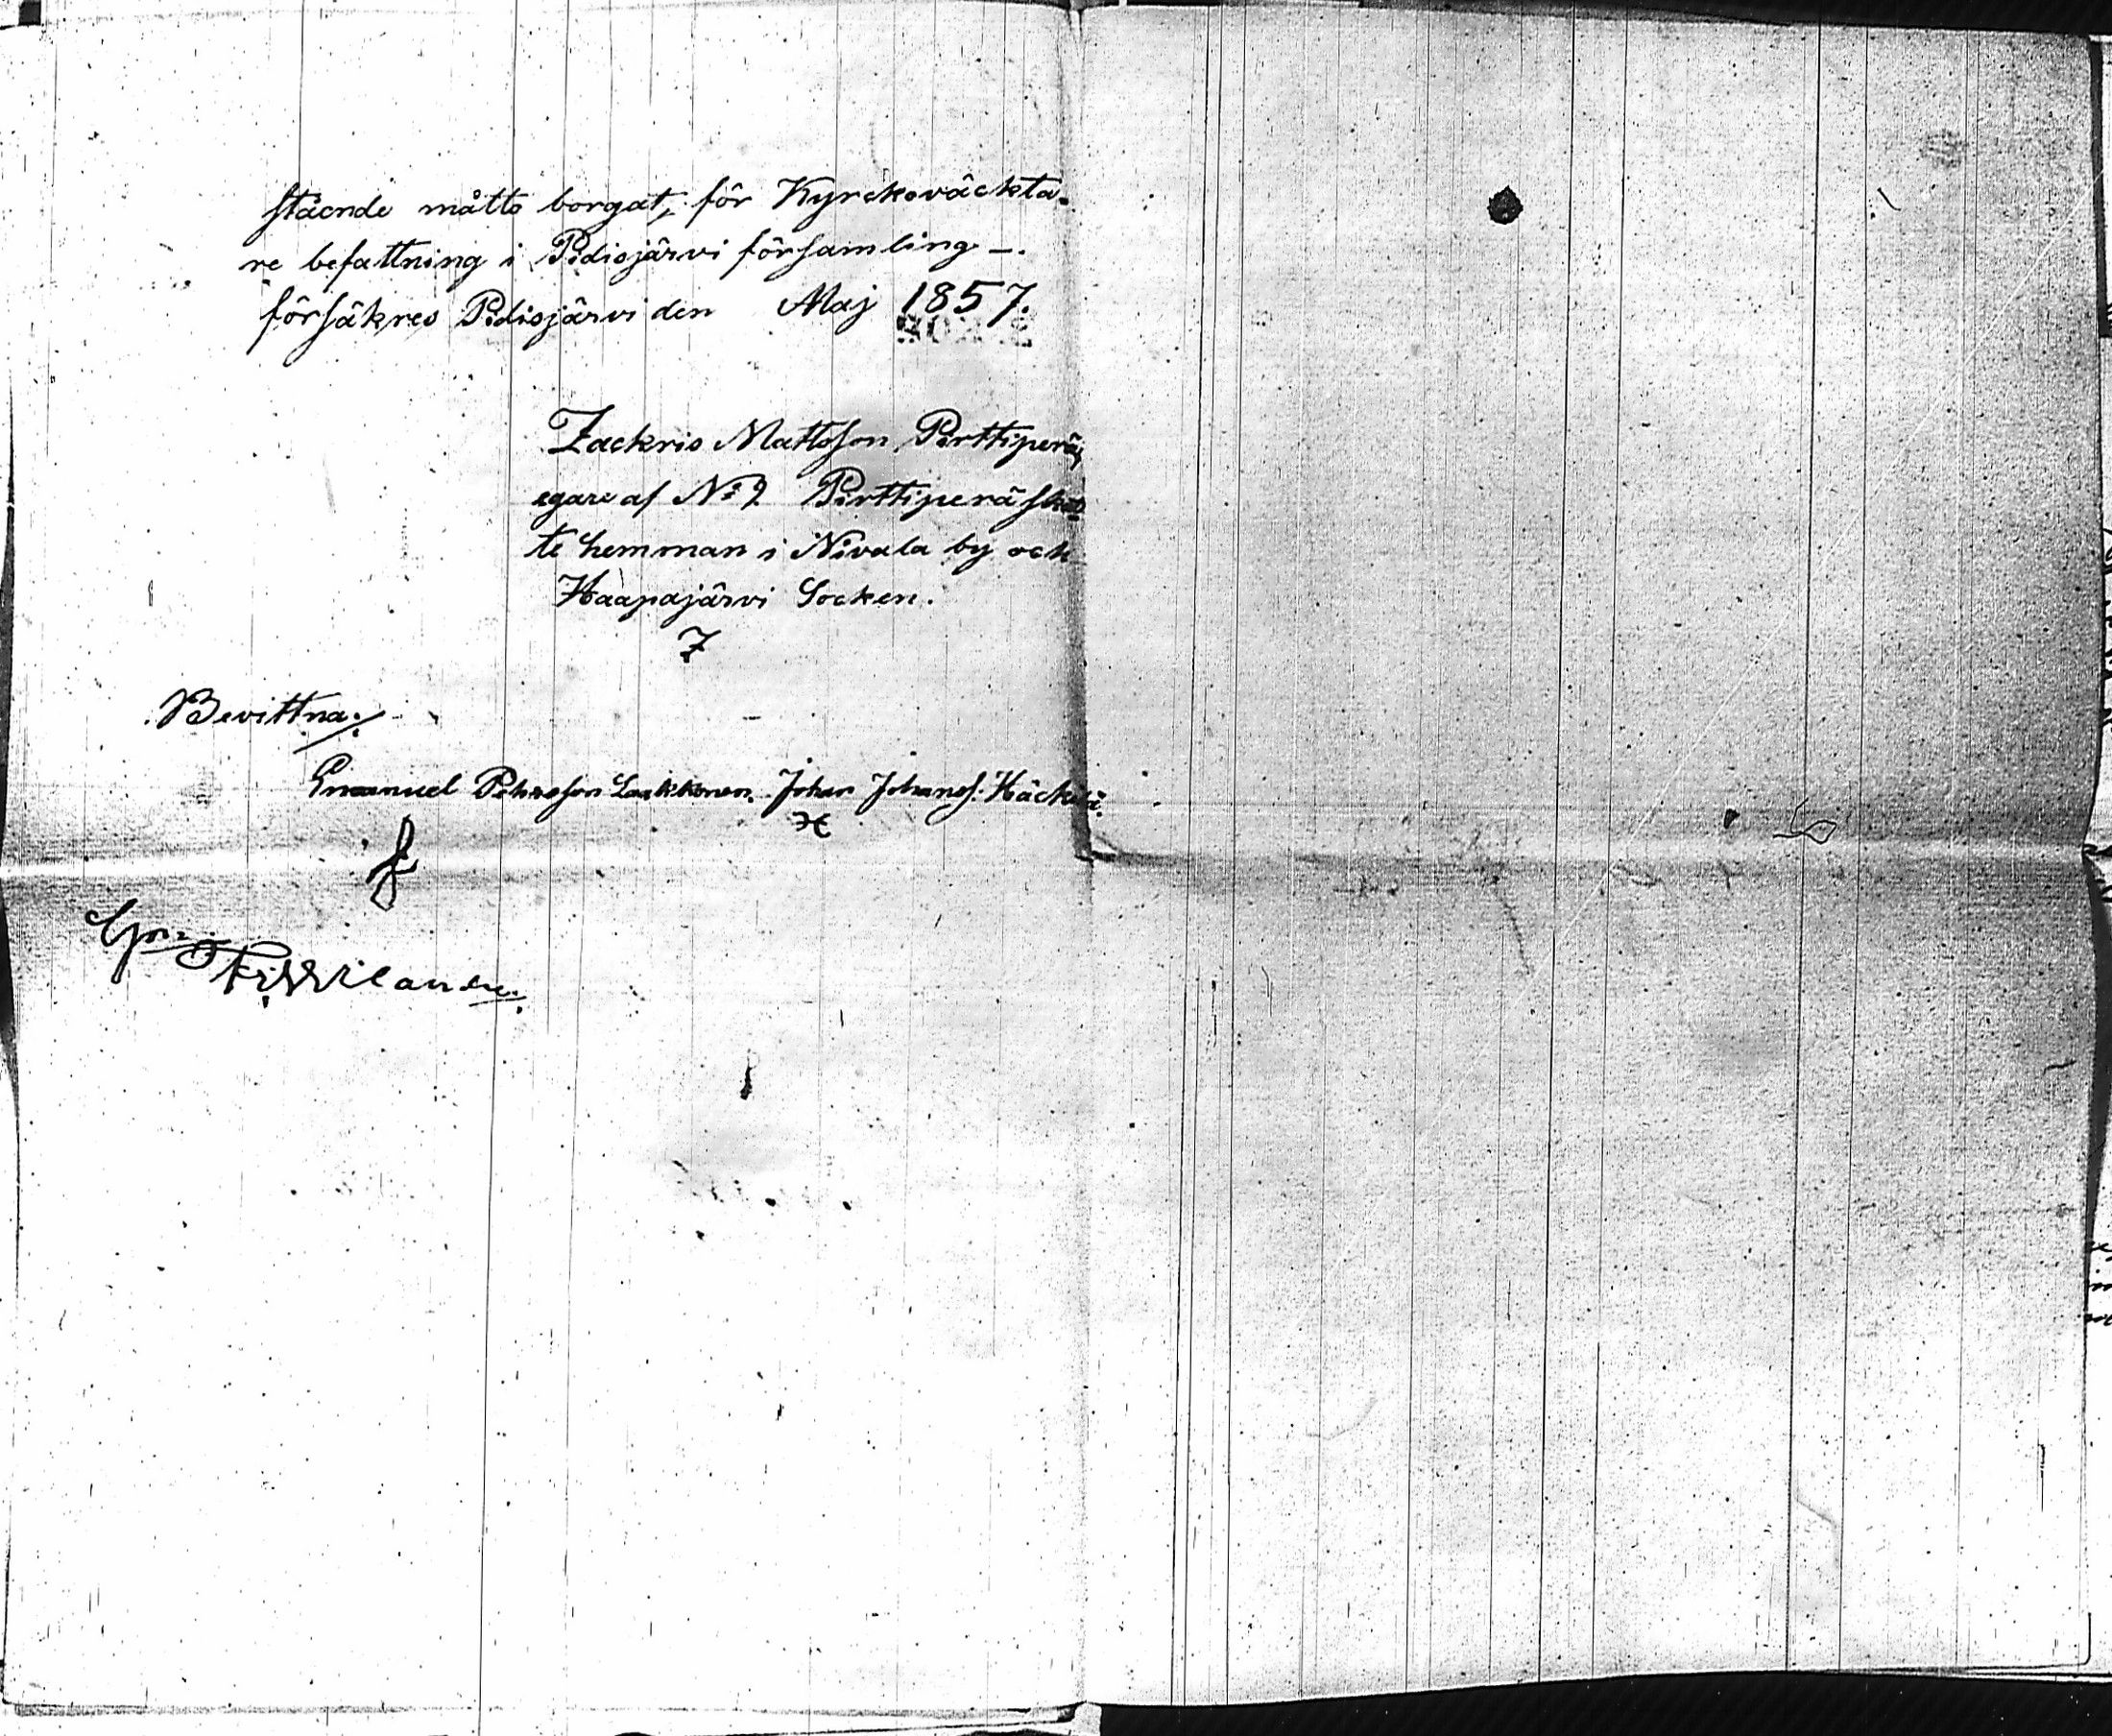 stående måtto borgat, för Kyrckoväckta-
re befattning i Pidisjärvi församling —.
försäkres Pidisjärvi den Maj 1857.
Zackris Mattsson Pirttiperä,
egare af No 2 Pirttiperä skat
te hemman i Nivala by och
Haapajärvi Socken.
Z
Bevittna:
Emanuel Pehrsson Laakkonen. Johan Johans. Häckilä.